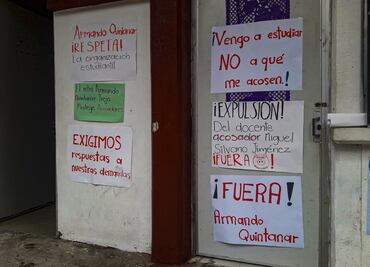 Armando Quintanar
¡RESPETA!
La organización
estudiantil
El mtro Armando
Quintanar Trejo
Protege Acosadores
EXIGIMOS
respuestas a
nuestras demandas
¡Vengo a estudiar
NO a qué
me acosen.!
¡EXPULSIÓN!
Del docente
acosador Miguel
Silvano Jiménez
¡FUERA !
¡FUERA!
Armando
Quintanar